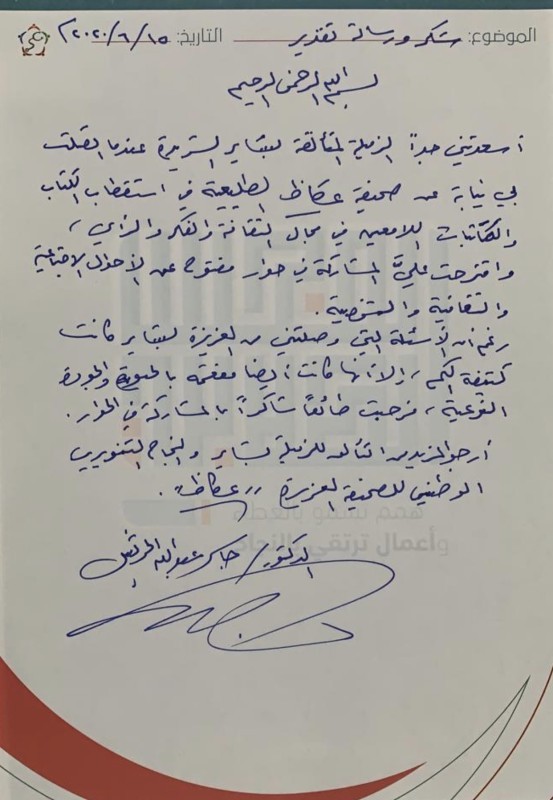 الموضوع: شكر ورسالة تقدير التاريخ: ٢٠٢٠/٦/١٥م
بسم الله الرحمن الرحيم
أسعدتني جداً الزميلة المتألقة بشاير الشريدة عندما اتصلت
بي نيابة عن صحيفة عكاظ الطليعية في استقطاب الكتاب
والكاتبات اللامعين في مجال الثقافة والفكر والرأي،
واقترحت عليّ المشاركة في حوار مفتوح عن الأحوال الاجتماعية
والثقافية والشخصية.
رغم أن الأسئلة التي وصلتني من العزيزة بشاير كانت
كثيفة الكم، إلا أنها كانت أيضا مفعمة بالحيوية والجودة
النوعية، فرحبت طائعاً شاكراً بالمشاركة في الحوار.
أرجو المزيد من التألق للزميلة بشاير والنجاح التنويري
الوطني للصحيفة العزيزة «عكاظ».
همم تسمو بالعطاء
وأعمال ترتقي بالنجاح
الدكتور/ جاسر عبدالله الحربش